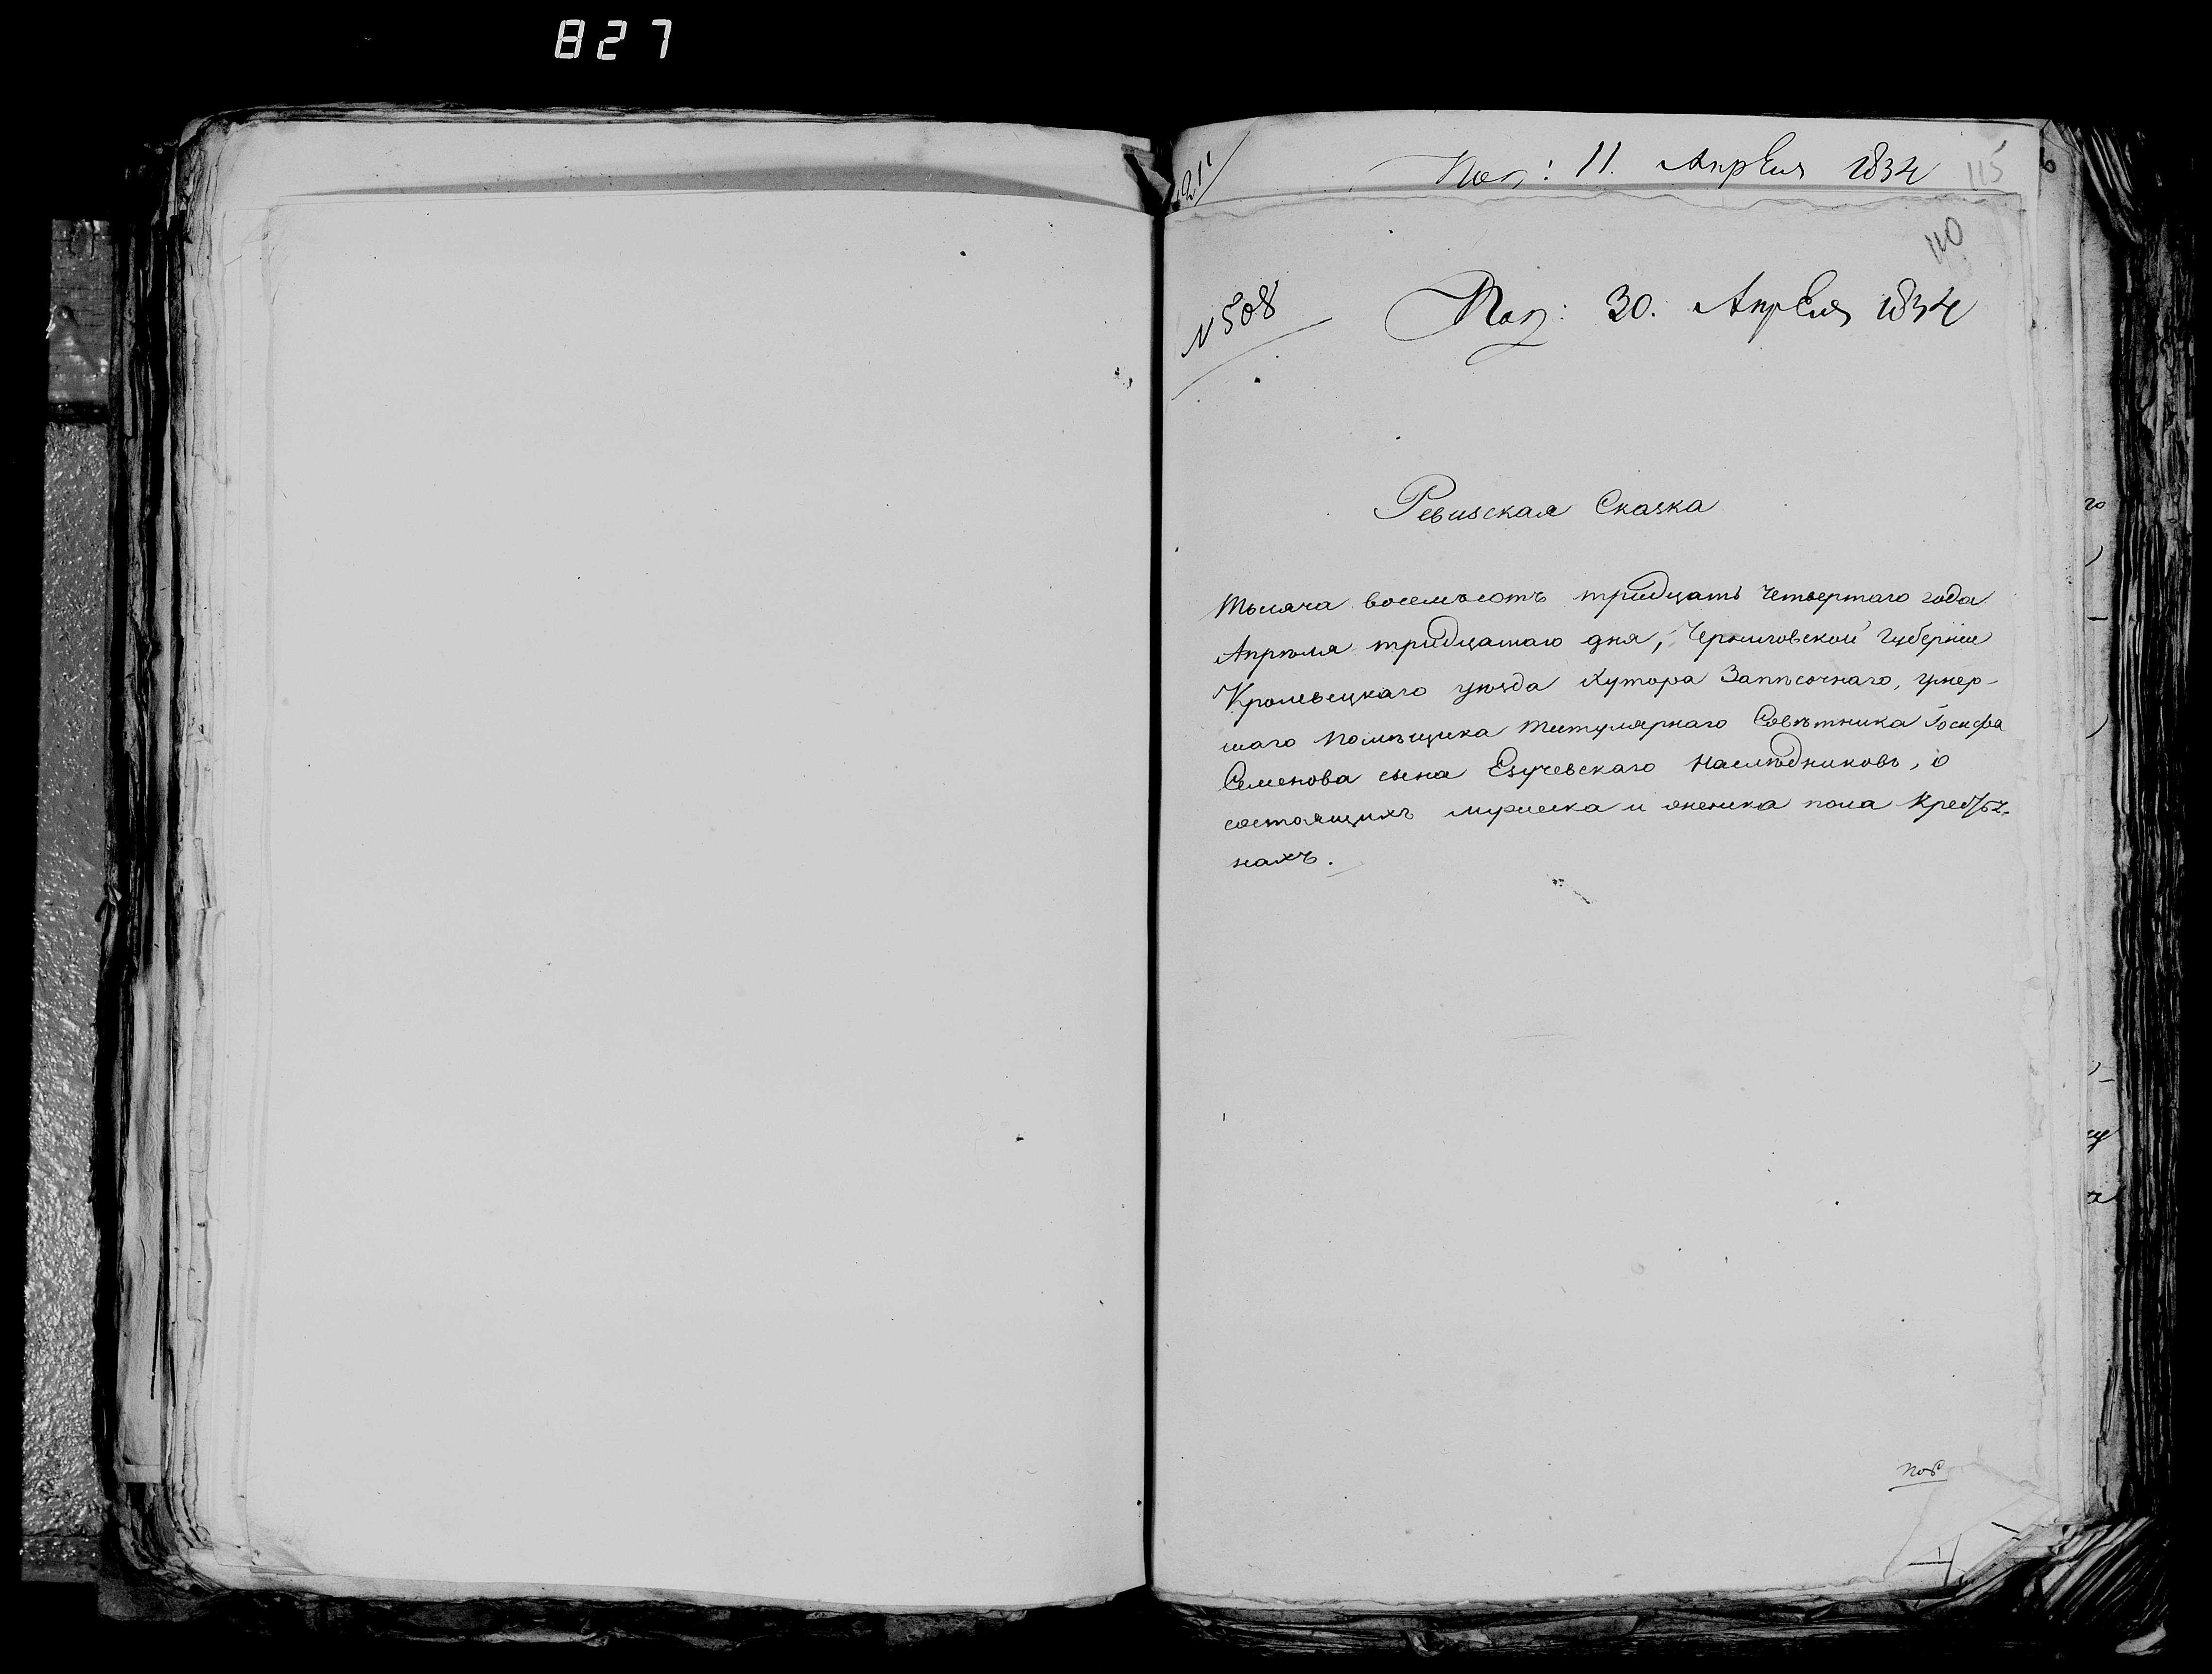 827
Пол: 11. Апрѣля 1834
115
110
N 508
Пол: 30. Апрѣля 1834
Ревиская Сказка
Тысяча восемьсотъ тридцать четвертаго года
Апрѣля тридцатаго дня, Черниговской губерніи
Кролевецкаго уѣзда Хутора Запѣсочнаго, умер-
шаго помѣщика Титулярнаго Совѣтника Іосифа
Семенова сына Езучевскаго наслѣдниковъ, о
состоящихъ мужеска и женска пола крестья-
нахъ.